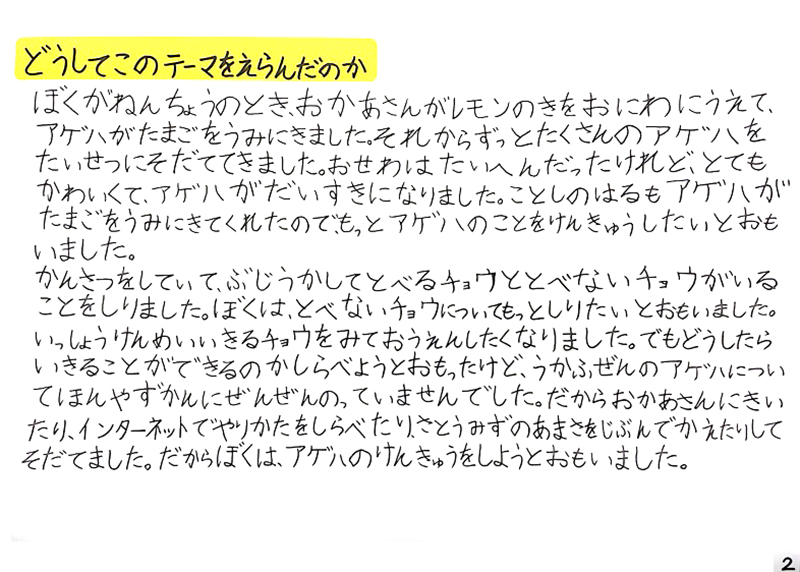 どうしてこのテーマをえらんだのか
ぼくがねんちょうのとき、おかあさんがレモンのきをおにわにうえて、
アゲハがたまごをうみにきました。それからずっとたくさんのアゲハを
たいせつにそだててきました。おせわはたいへんだったけれど、とても
かわいくて、アゲハがだいすきになりました。ことしのはるもアゲハが
たまごをうみにきてくれたので、もっとアゲハのことをけんきゅうしたいとおも
いました。
かんさつをしていて、ぶじうかしてとべるチョウととべないチョウがいる
ことをしりました。ぼくは、とべないチョウについてもっとしりたいとおもいました。
いっしょうけんめいいきるチョウをみておうえんしたくなりました。でもどうしたら
いきることができるのかしらべようとおもったけど、うかふぜんのアゲハについ
てほんやずかんにぜんぜんのっていませんでした。だからおかあさんにきい
たり、インターネットでやりかたをしらべたり、さとうみずのあまさをじぶんでかえたりして
そだてました。だからぼくは、アゲハのけんきゅうをしようとおもいました。
2